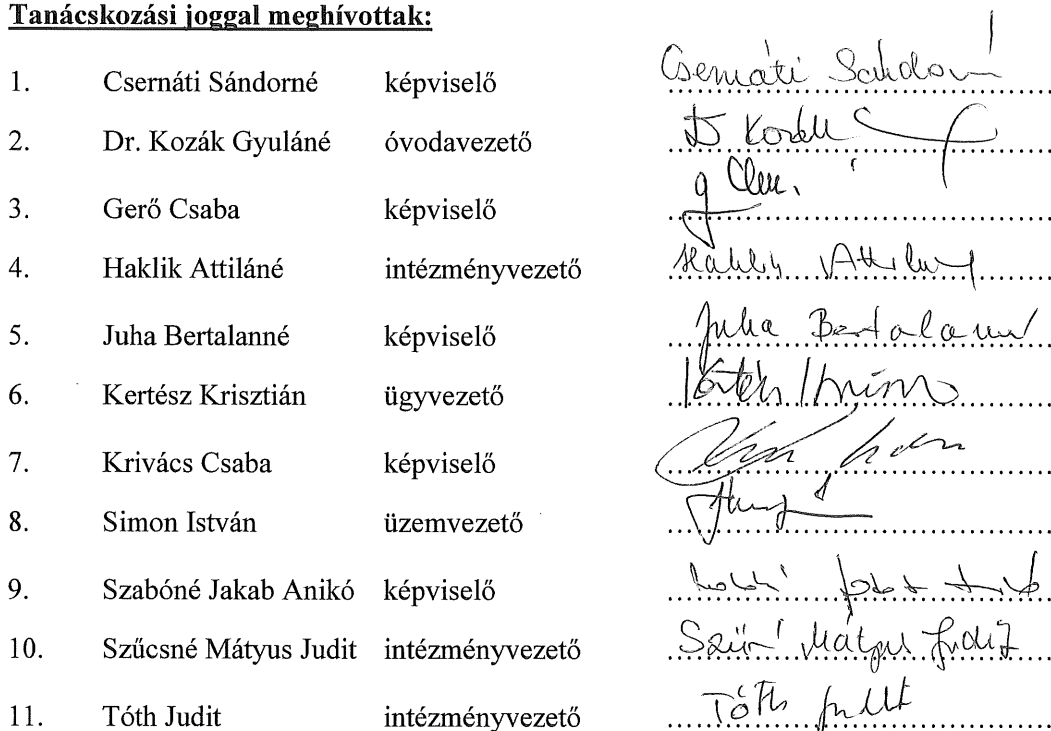 Tanácskozási joggal meghívottak:
1. Csernáti Sándorné képviselő Csernáti Sándorné
2. Dr. Kozák Gyuláné óvodavezető
3. Gerő Csaba képviselő
4. Haklik Attiláné intézményvezető Haklik Attiláné
5. Juha Bertalanné képviselő Juha Bertalanné
6. Kertész Krisztián ügyvezető
7. Krivács Csaba képviselő
8. Simon István üzemvezető
9. Szabóné Jakab Anikó képviselő
10. Szűcsné Mátyus Judit intézményvezető Szűcsné Mátyus Judit
11. Tóth Judit intézményvezető Tóth Judit